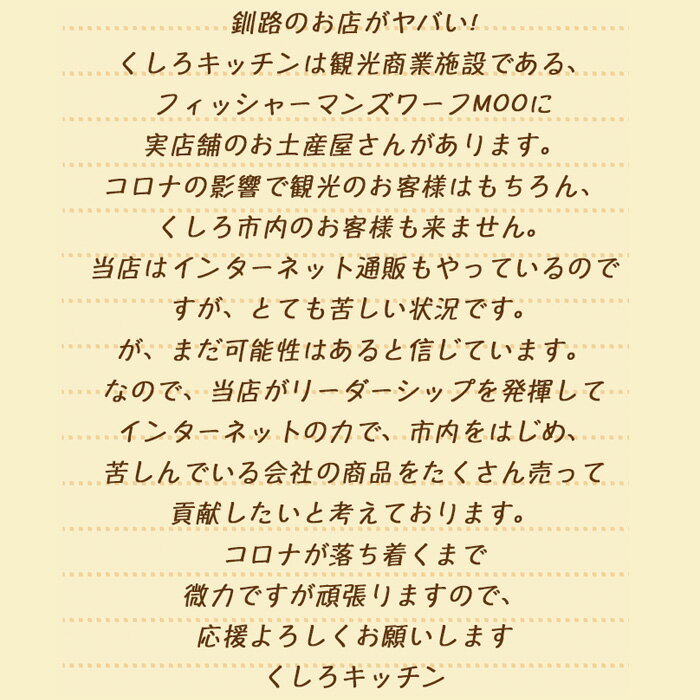 釧路のお店がヤバい!
くしろキッチンは観光商業施設である、
フィッシャーマンズワーフMOOに
実店舗のお土産屋さんがあります。
コロナの影響で観光のお客様はもちろん、
くしろ市内のお客様も来ません。
当店はインターネット通販もやっているので
すが、とても苦しい状況です。
が、まだ可能性はあると信じています。
なので、当店がリーダーシップを発揮して
インターネットの力で、市内をはじめ、
苦しんでいる会社の商品をたくさん売って
貢献したいと考えております。
コロナが落ち着くまで
微力ですが頑張りますので、
応援よろしくお願いします
くしろキッチン